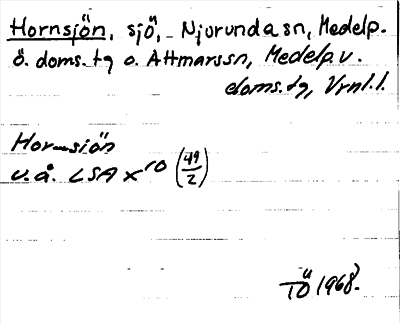 Hornsjön, sjö, Njurunda sn, Medelp.
ö. doms.tg o. Attmarssn, Medelp. v.
doms.tg, Vrnl.l.
Hornsiön
u.å. LSA X 10 (49/2)
TÖ 1968.